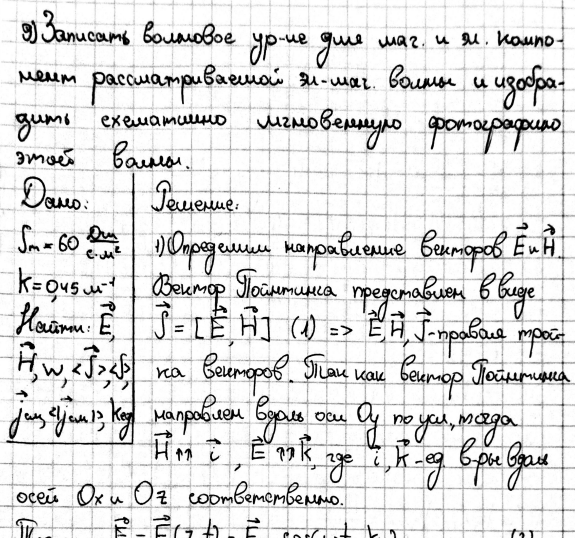 9) Записать волновое ур-ие для маг. и эл. компо-
нент рассматриваемой эл-маг. волны и изобра-
зить схематично мгновенную фотографию
этой волны.
Дано:
Sm = 60 Дж/с·м²
k = 0,45 м⁻¹
Найти: E⃗,
H⃗, w, <S⃗>, <S>,
j⃗см, <|jсм|>, Kед
Решение:
1) Определим направление векторов E⃗ и H⃗.
Вектор Пойнтинга представлен в виде
S⃗ = [E⃗, H⃗] (1) => E⃗, H⃗, S⃗ - правая трой-
ка векторов. Так как вектор Пойнтинга
направлен вдоль оси Oy по усл, тогда
H⃗ ↑↑ i⃗, E⃗ ↑↑ k⃗, где i⃗, k⃗ - ед. в-ры вдоль
осей Ox и Oz соответственно.